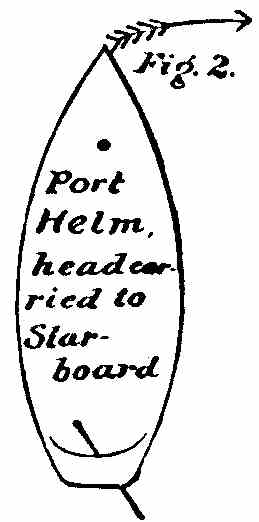 Fig. 2.
Port
Helm,
head car-
ried to
Star-
board